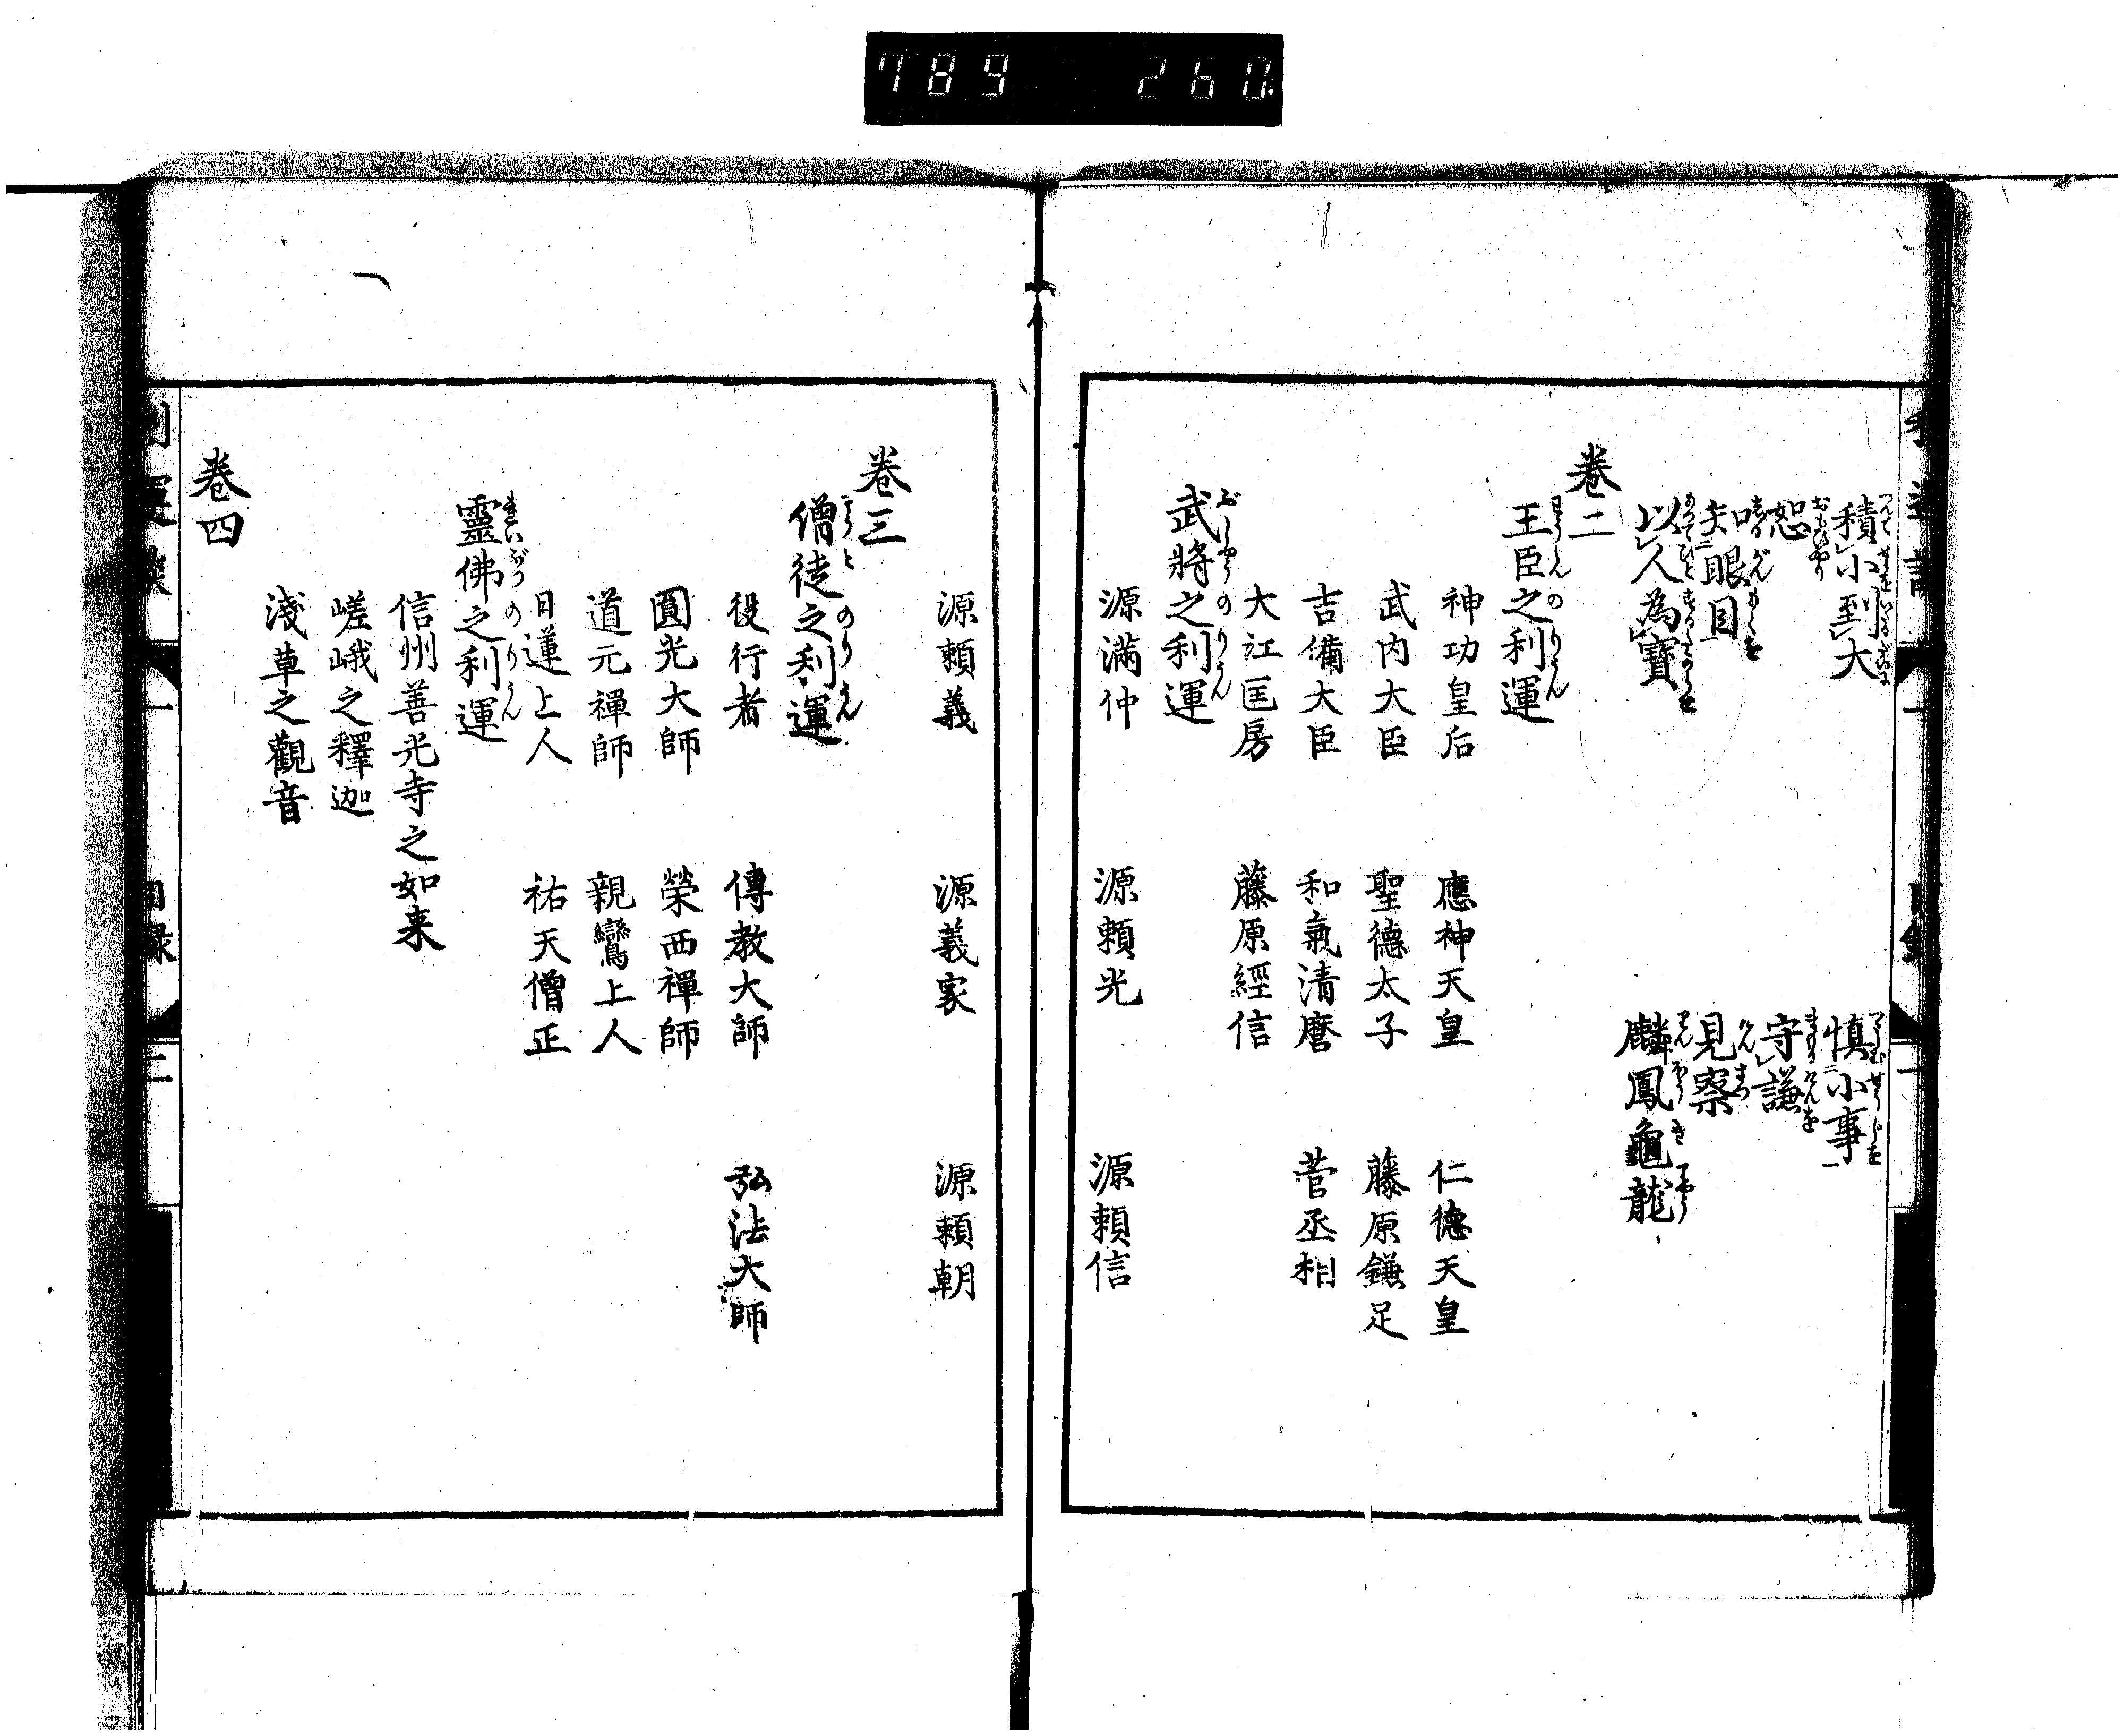 789 260.
積小到大 慎小事
恕 守謙
眼目 見察
以人為寶 麟鳳龜龍
卷二
王臣之利運
神功皇后 應神天皇 仁德天皇
武内大臣 聖德太子 藤原鎌足
吉備大臣 和氣清麿 菅丞相
大江匡房 藤原經信
武將之利運
源滿仲 源賴光 源賴信
源賴義 源義家 源賴朝
卷三
僧徒之利運
役行者 傳教大師 弘法大師
圓光大師 榮西禪師
道元禪師 親鸞上人
日蓮上人 祐天僧正
靈佛之利運
信州善光寺之如来
嵯峨之釋迦
淺草之觀音
卷四